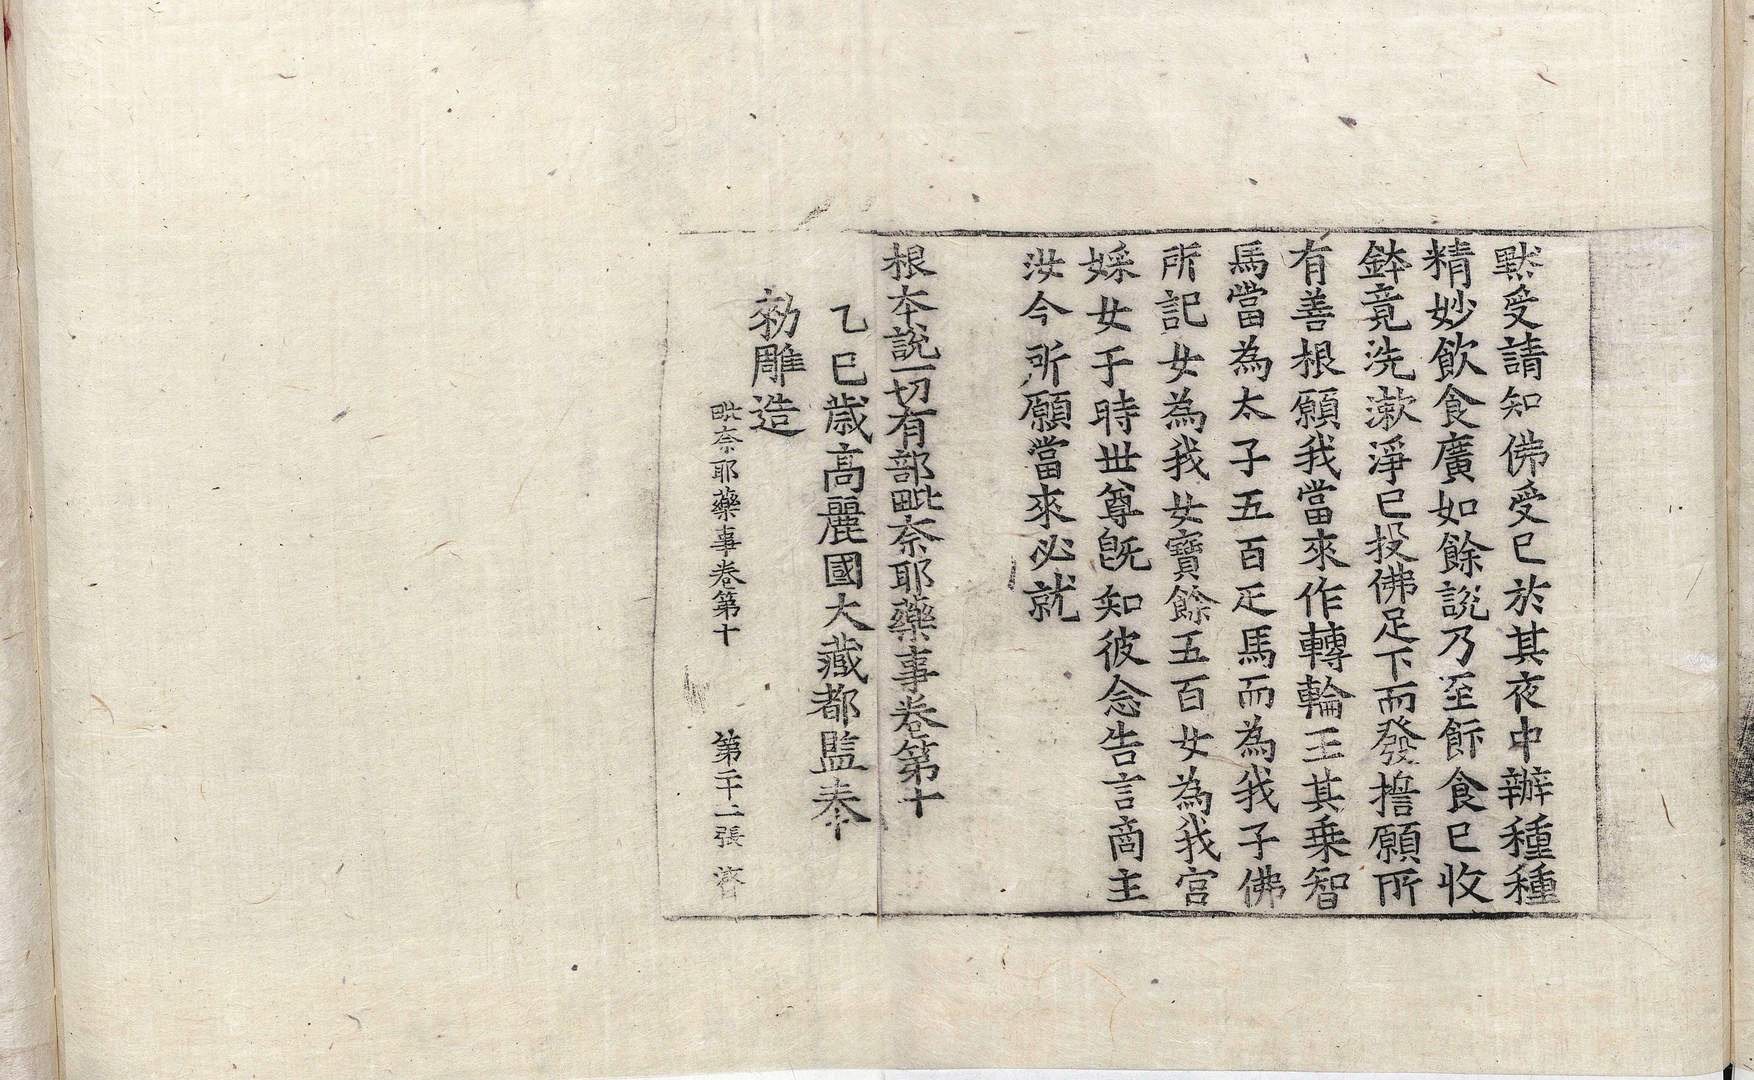 黙受請知佛受已於其夜中辦種種
精妙飲食廣如餘說乃至飾食已收
鉢竟洗漱淨已投佛足下而發擔願所
有善根願我當來作轉輪王其乗智
馬當為太子五百疋馬而為我子佛
所記女為我女寶餘五百女為我宮
婇女于時世尊旣知彼念告言商主
汝今所願當來必就
根本說一切有部毗奈耶藥事卷第十
乙巳歳高麗國大藏都監奉
勑雕造
毗奈耶藥事卷第十 第二十二張 濟